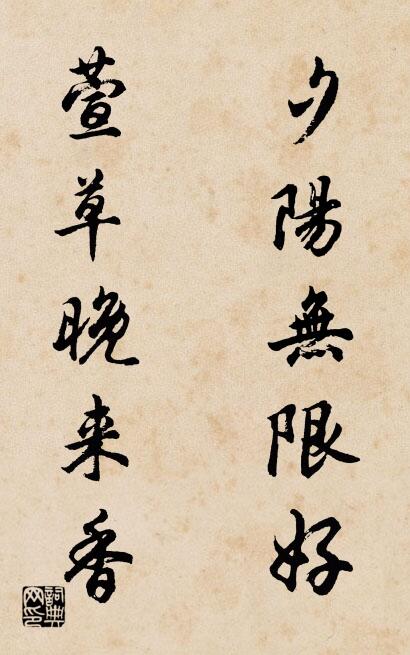 夕陽無限好
萱草晚来香
詞典网印